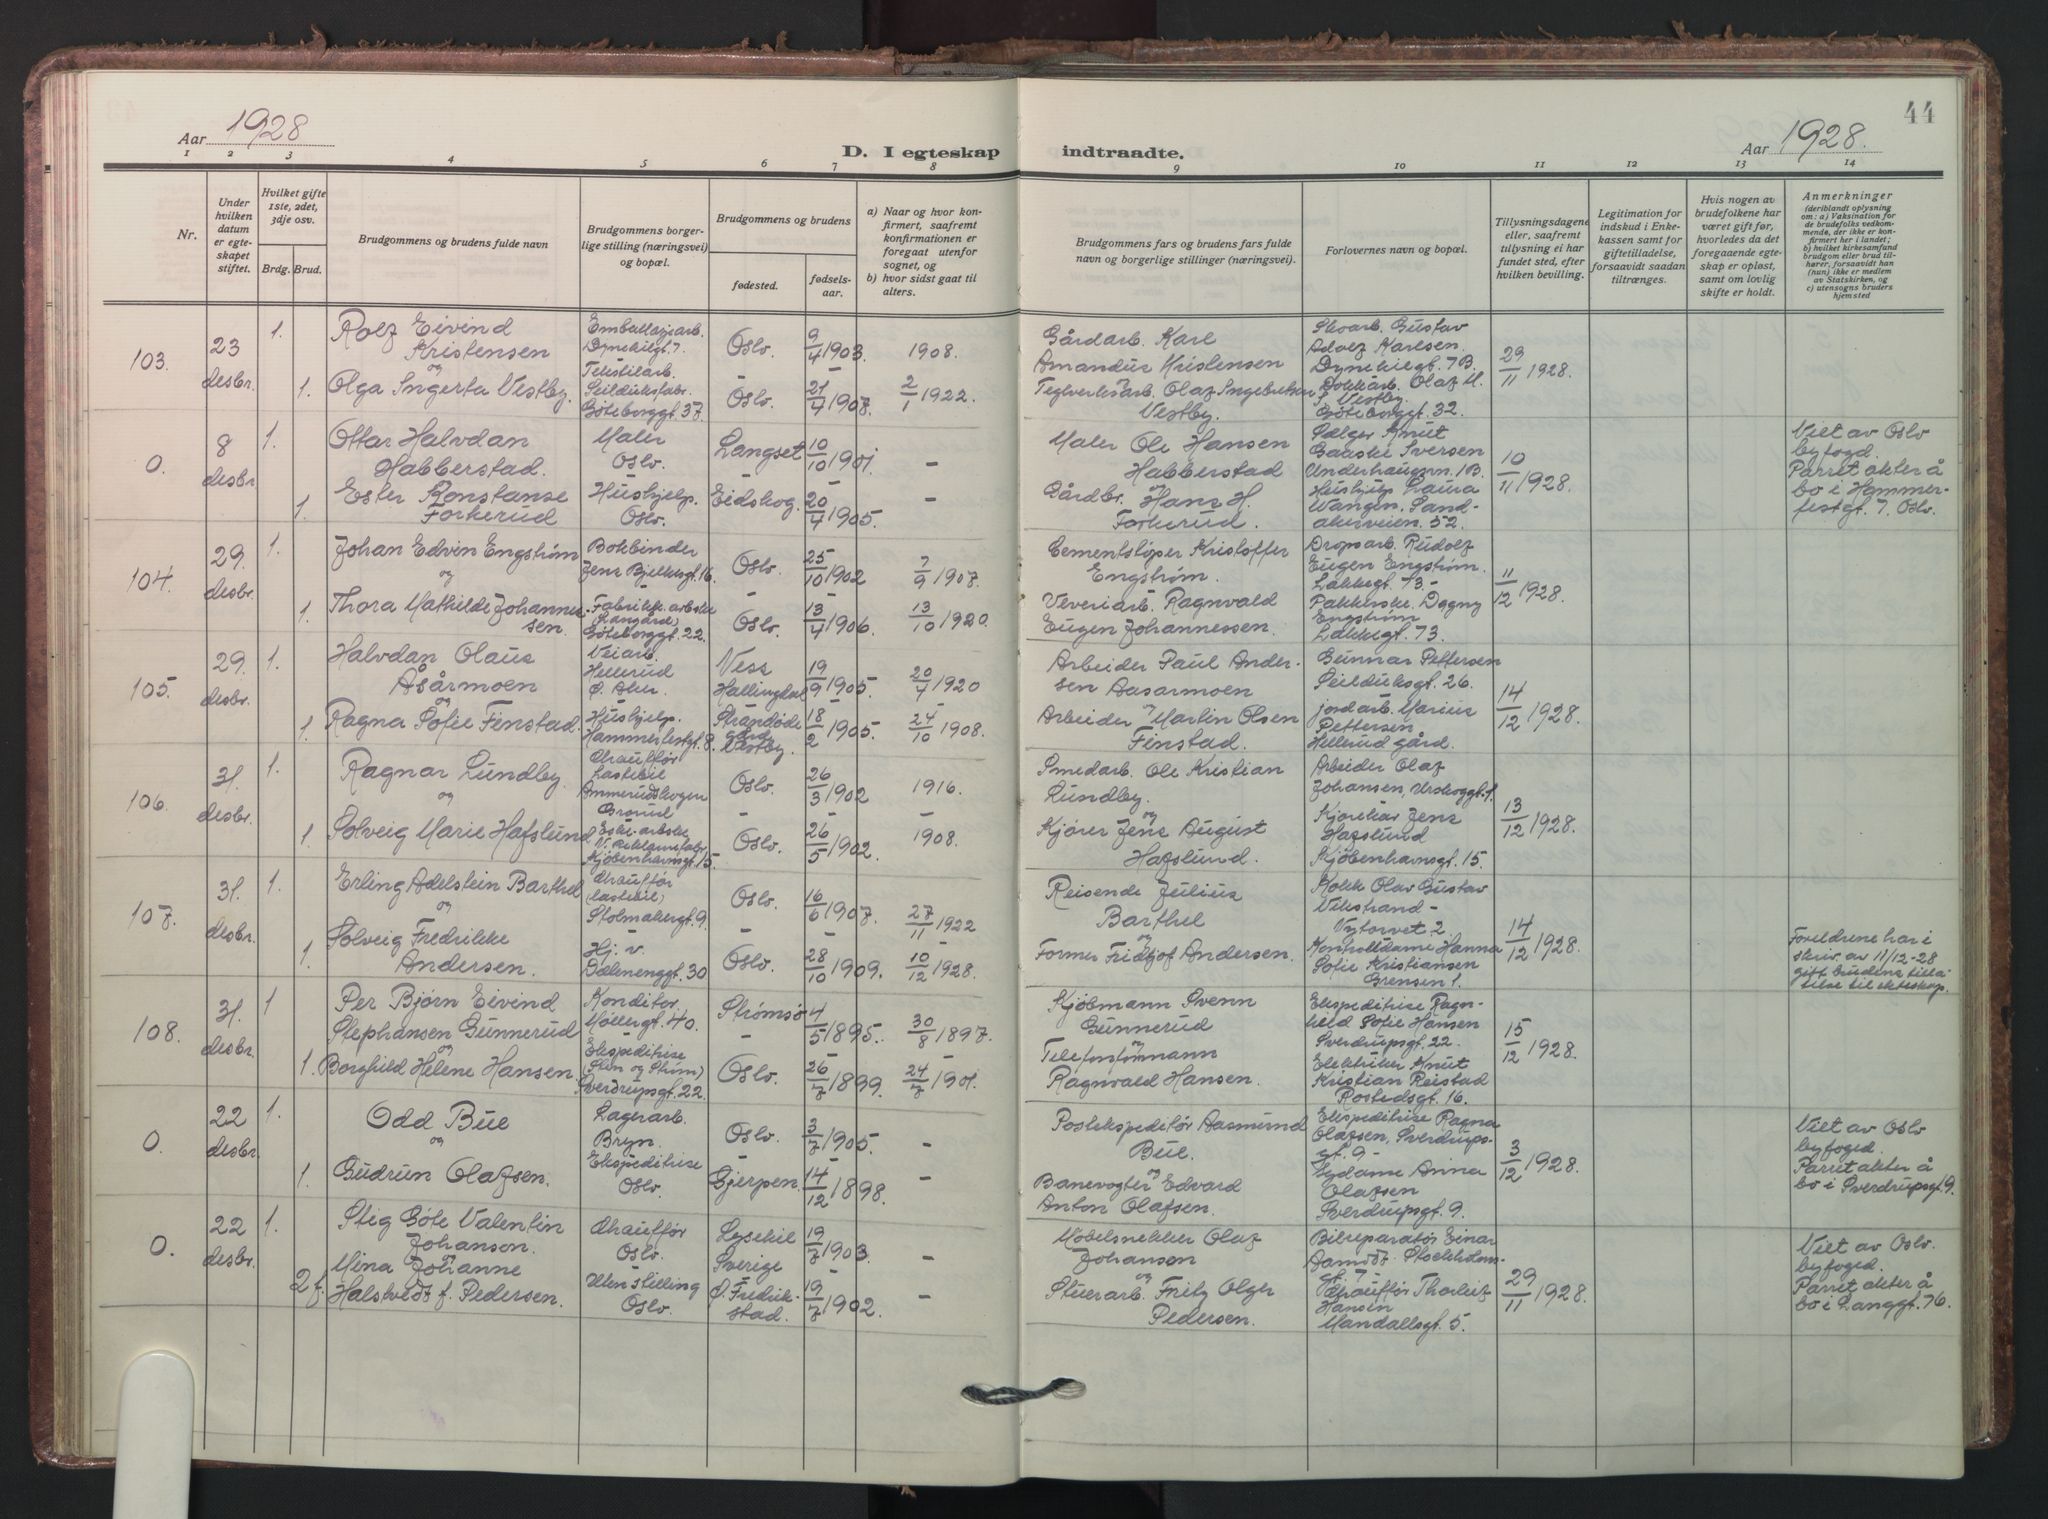 Aar 1928
D. I egteskap indtraadte.
44
Aar 1928.
1 2 3 4 5 6 7 8 9 10 11 12 13 14
Nr.
Under hvilken datum er egteskapet stiftet.
Hvilket gifte 1ste, 2det, 3dje osv.
Brdg. Brud.
Brudgommens og brudens fulde navn
Brudgommens borgerlige stilling (næringsvei) og bopæl.
Brudgommens og brudens
fødested.
fødselsaar.
a) Naar og hvor konfirmert, saafremt konfirmationen er foregaat utenfor sognet, og
b) hvor sidst gaat til alters.
Brudgommens fars og brudens fars fulde navn og borgerlige stillinger (næringsvei).
Forlovernes navn og bopæl.
Tillysningsdagene eller, saafremt tillysning ei har fundet sted, efter hvilken bevilling.
Legitimation for indskud i Enkekassen samt for giftetilladelse, forsaavidt saadan tiltrænges.
Hvis nogen av brudefolkene har været gift før, hvorledes da det foregaaende egteskap er opløst, samt om lovlig skifte er holdt.
Anmerkninger
(deriblandt oplysning om: a) Vaksination for de brudefolks vedkommende, der ikke er konfirmert her i landet; b) hvilket kirkesamfund brudgom eller brud tilhører, forsaavidt han (hun) ikke er medlem av Statskirken, og c) utensogns bruders hjemsted
103.
23 desbr.
1.
Rolf Eivind
Kristensen
og
1. Olga Ingerta Vestby.
Emballagearb.
Dynekilgt. 7.
Tekstilarb.
Seilduksfabr.
Göteborggt. 37.
Oslo. 9/4 1903. 1908.
Oslo. 21/4 1907. 2/1 1922.
Gårdarb. Karl
Amandus Kristensen
og
Teglverksarb. Olaf Ingebretsen
Vestby.
Skoarb. Gustav
Adolf Karlsen.
Dynekilgt. 7 B.
Dokkarb. Olaf M.
S. Vestby.
Göteborggt. 32.
29/11 1928.
0.
8 desbr
1.
Ottar Halvdan
Habberstad.
1. Ester Konstanse
Forkerud
Maler
Oslo.
Hushjelp.
Oslo.
Langset 10/10 1901. -
Eidskog. 20/4 1905. -
Maler Ole Hansen
Habberstad
og
Gårdbr. Hans H.
Forkerud.
Sælger Knut
Baaske Iversen
Underhaugsvn. 1B.
Hushjelp Laura
Wangen, Sand-
akerveien. 52.
10/11 1928.
Viet av Oslo
byfogd.
Parret akter å
bo i Hammer-
festgt. 7. Oslo.
104.
29. desbr.
1.
Johan Edvin Engstrøm
og
1. Thora Mathilde Johannes-
sen.
Bokbinder
Jens Bjelkesgt. 16.
Fabrikk-arbske
Göteborggt. 22.
Oslo. 25/10 1902 7/9 1907.
Oslo. 13/4 1906. 13/10 1920.
Cementstøper Kristoffer
Engstrøm.
Veveriarb. Ragnvald
Eugen Johannessen.
Dropsarb. Rudolf
Eugen Engstrøm.
Lakkegt. 73-
Pakkerske. Dagny
Engstrøm
Lakkegt. 73.
11/12 1928.
105.
29. desbr.
1.
Halvdan Olaus
Asårmoen
og
1. Ragna Sofie Finstad.
Veiarb.
Hellerud
Ø. Aker.
Hushjelp.
Hammerfestgt. 8.
Ness
Hallingdal 19/9 1905. 20/7 1920
Vestby. 18/2 1905. 24/10 1908.
Arbeider Paul Ander-
sen Aasarmoen
og
Arbeider Martin Olsen
Finstad.
Gunnar Pettersen
Seilduksgt. 26.
jordarb. Marius
Pettersen
Hellerud gård.
14/12 1928.
106.
31. desbr.
1.
Ragnar Lundby.
og
1. Solveig Marie Hafslund
Chauffør
Lastebil
Ammerudskogen
Grorud
Eske-arbske
Kjøbenhavnsgt. 15.
Oslo. 26/3 1902 1916.
Oslo. 26/5 1902. 1908.
Smedarb. Ole Kristian
Lundby.
og
Kjører Jens August
Hafslund.
Arbeider Olaf
Johansen, Urskoggt. 1.
Kjørekar Jens
Hafslund
Kjöbenhavnsgt. 15.
13/12 1928.
107.
31. desbr.
1.
Erling Adelstein Barthel
og
1. Solveig Fredrikke
Andersen.
Chauffør
(Lastebil)
Stolmakergt. 9.
Hj. v.
Dælenenggt. 30
Oslo. 16/6 1907. 27/11 1922
Oslo. 28/10 1909. 10/12 1928.
Reisende Julius
Barthel
og
Former Fridtjof Andersen.
Kokk Olav Gustav
Vikstrand-
Nytorvet 2.
Kontrolldame Hanna
Sofie Kristiansen
Grensen 1.
14/12 1928.
Foreldrene har i
skriv. av 11/12-28
gitt bruden tilla-
telse til ekteskap.
108.
31. desbr.
1
Per Bjørn Eivind
Stephansen Gunnerud
og
1. Borghild Helene Hansen.
Konditor
Møllergt. 40.
Ekspeditrise
(Sten og Strøm)
Sverdrupsgt. 22.
Strømsø 4/5 1895. 30/8 1897.
Oslo. 26/7 1899. 24/7 1901.
Kjöbmann Svenn
Gunnerud
og
Telefonformann
Ragnvald Hansen.
Ekspeditrise Ragn-
hild Sofie Hansen
Sverdrupsgt. 22.
Elektriker Knut
Kristian Reistad
Rostedsgt. 16.
15/12 1928.
0.
22 desbr.
1.
Odd Bue
og
1. Gudrun Olafsen.
Lagerarb.
Bryn.
Ekspeditrise
Oslo.
Oslo. 3/7 1905. -
Gjerpen. 14/12 1898. -
Postekspeditør Aasmund
Bue.
og
Banevogter Edvard
Anton Olafsen.
Ekspeditrise Ragna
Olafsen, Sverdrups-
gt. 9-
Sydame Anna
Olafsen
Sverdrupsgt. 9.
3/12 1928.
Viet av Oslo
byfoged.
Parret akter å
bo i Sverdrupsgt. 9.
0.
22 desbr.
1.
Stig Göte Valentin
Johanson.
og
Mina Johanne
2 f. Halstvedt f. Pedersen.
Chauffør
Oslo.
Uten stilling
Oslo.
Lysekil
Sverige 19/7 1903. -
Ø. Fredrik-
stad. 19/7 1902. -
Möbelsnekker Olaf
Johansen
og
Stuerarb. Fritz Olger
Pedersen.
Bilreparatør Einar
Aamodt Stockholm-
gt. 7.
Chauffør Thorleif
Hansen
Mandallsgt. 5.
29/11 1928.
Viet av Oslo.
byfoged.
Parret akter å
bo i Langgt. 76.